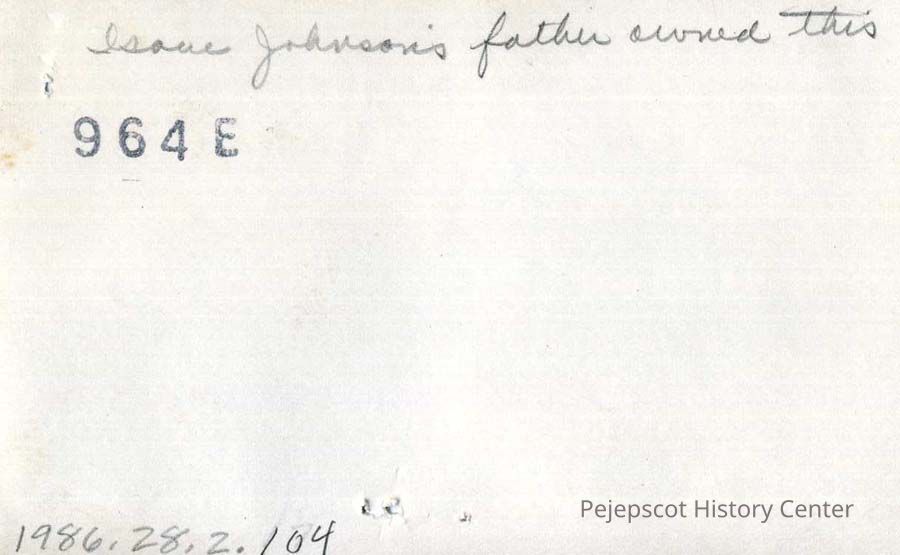 Isaac Johnson's father owned this
964E
Pejepscot History Center
1986.28.2.104